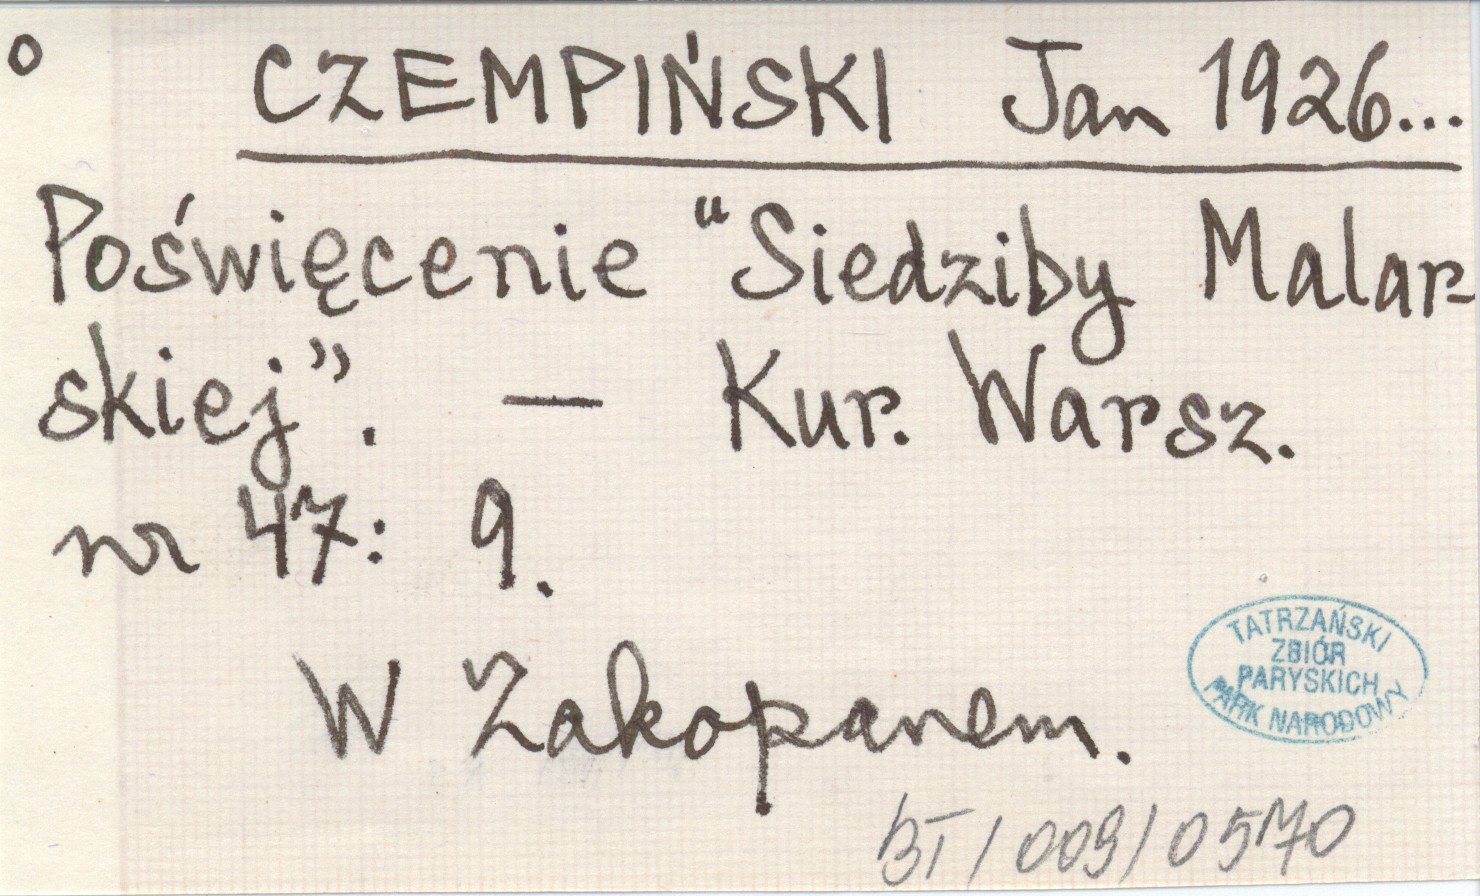 o CZEMPIŃSKI Jan 1926...
Poświęcenie "Siedziby Malar-
skiej". — Kur. Warsz.
nr 47: 9.
W Zakopanem.
TATRZAŃSKI
ZBIÓR
PARYSKICH
PARK NARODOWY
BT/009/0570